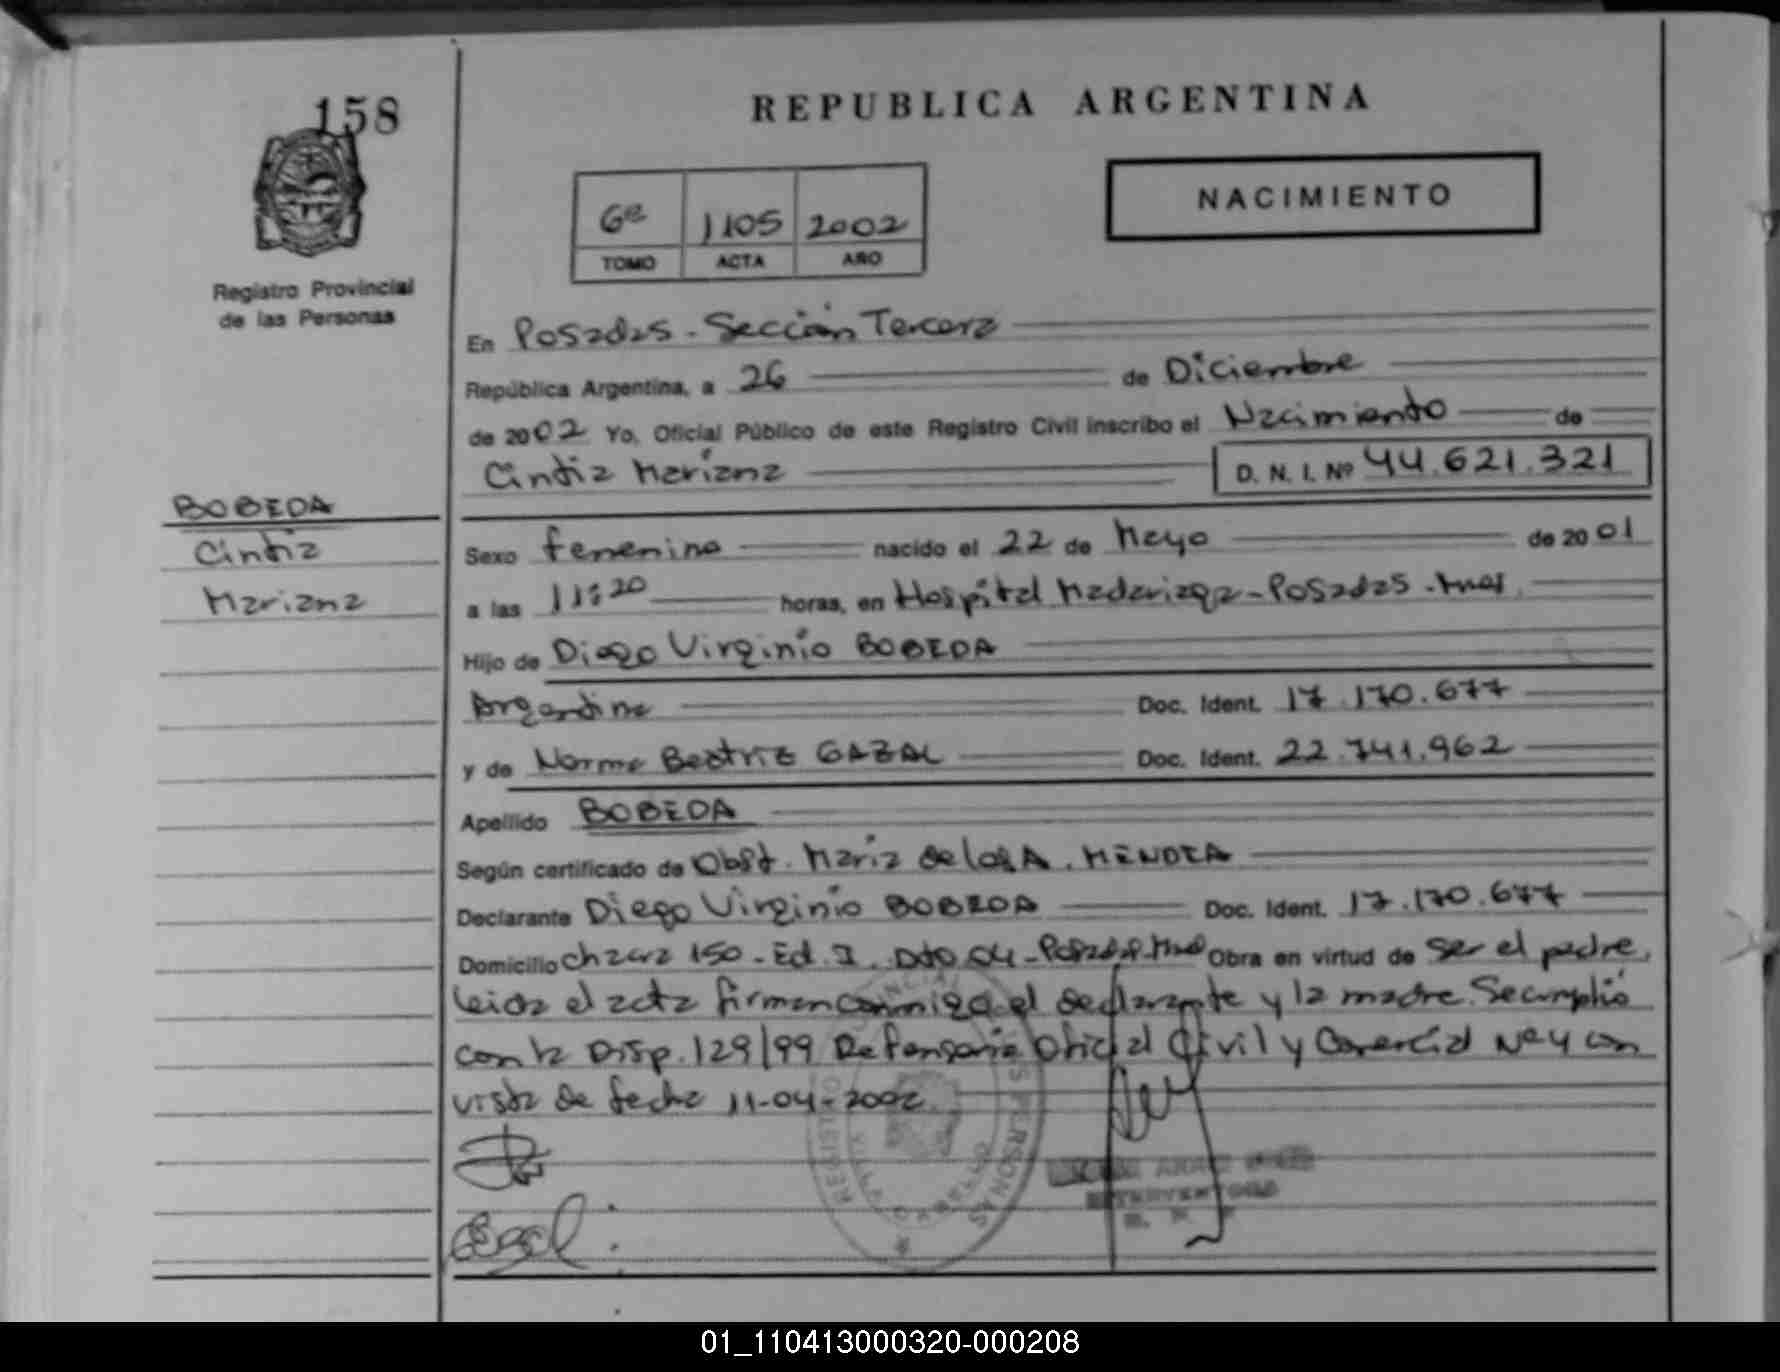 158
REPUBLICA ARGENTINA
NACIMIENTO
6º 1105 2002
TOMO ACTA AÑO
Registro Provincial
de las Personas
En Posadas - Sección Tercera
República Argentina, a 26 de Diciembre
de 2002 Yo, Oficial Público de este Registro Civil inscribo el Nacimiento de
Cintia Mariana D. N. I. Nº 44.621.321
BOBEDA
Cintia
Mariana
Sexo femenino nacido el 22 de Mayo de 2001
a las 11:20 horas, en Hospital Madariaga - Posadas - Mnes.
Hijo de Diego Virginio BOBEDA
Argentina Doc. Ident. 17.170.677
y de Norma Beatriz GAZAL Doc. Ident. 22.741.962
Apellido BOBEDA
Según certificado de Obst. Maria de los A.
Declarante Diego Virginio BOBEDA Doc. Ident. 17.170.677
Domicilio Chacra 150 - Ed. I. Dto 04 - Posadas Mnes Obra en virtud de ser el padre,
leida el acta firman conmigo el declarante y la madre. Se cumplió
con la Disp. 129/99 Defensoria Oficial Civil y Comercial Nº 4 con
vista de fecha 11-04-2002
REGISTRO PROVINCIAL DE LAS PERSONAS
01_110413000320-000208